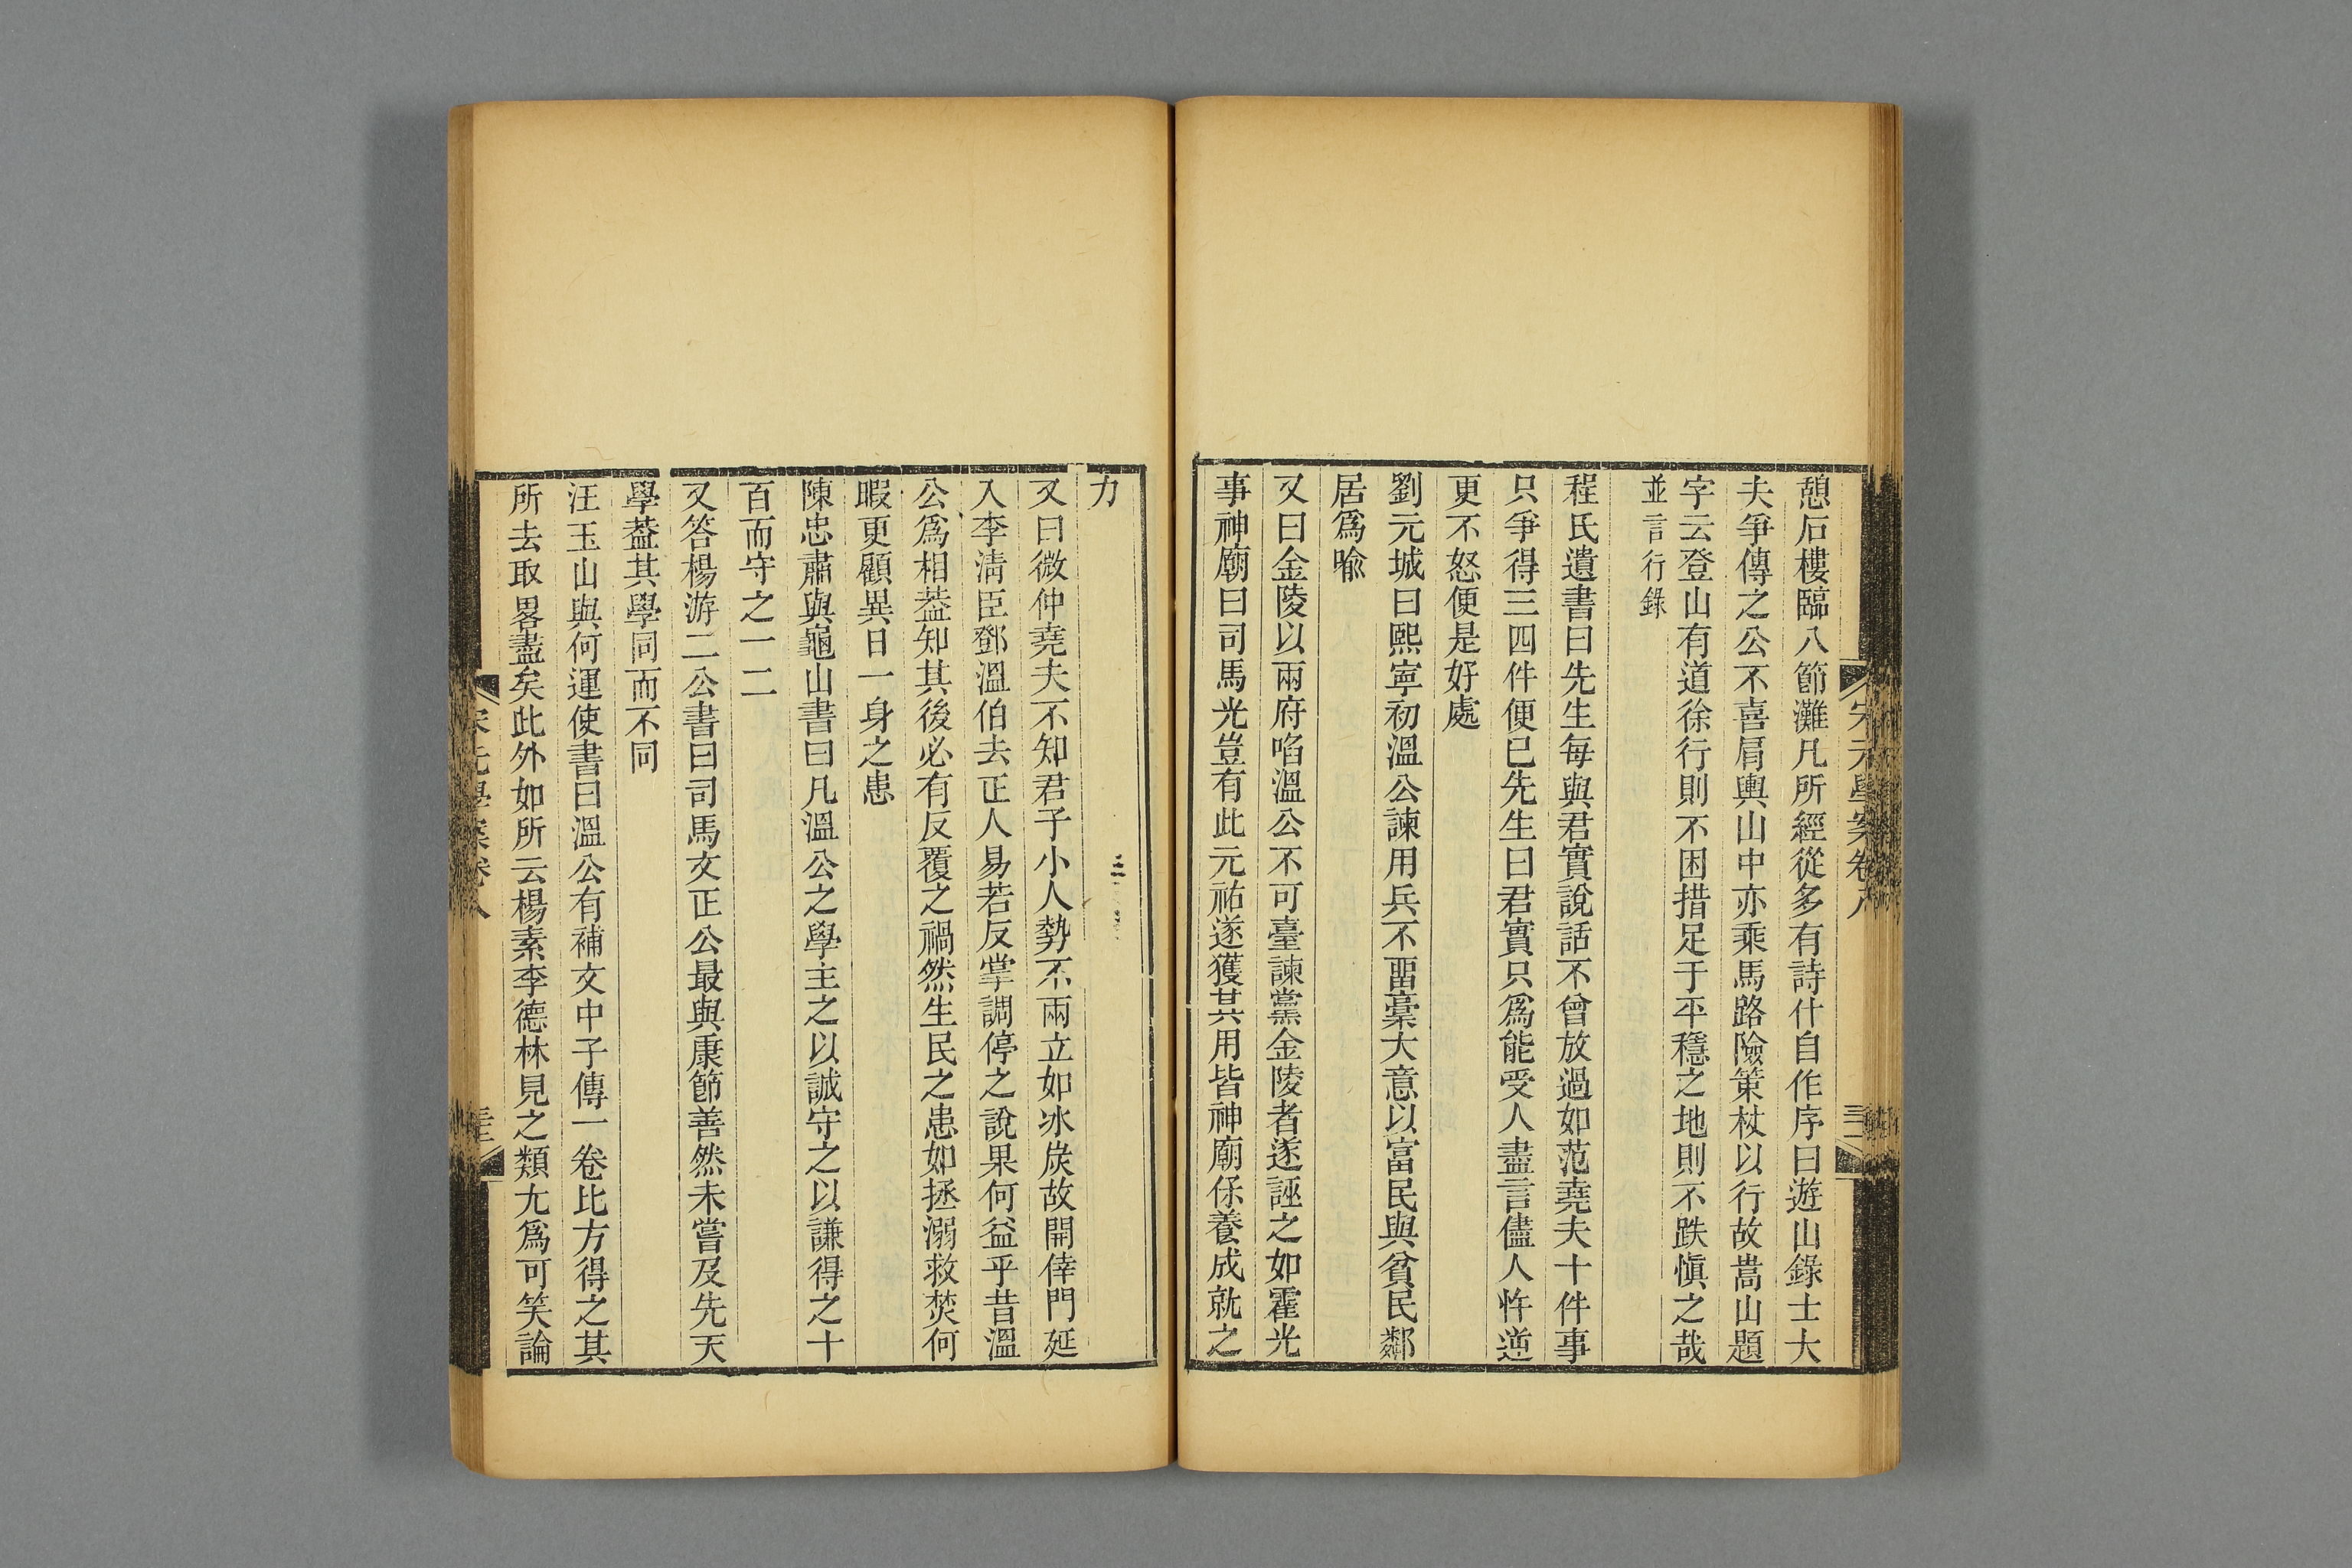 憩石樓臨八節灘凡所經從多有詩什自作序曰遊山錄士大
夫爭傳之公不喜肩輿山中亦乘馬路險策杖以行故嵩山題
字云登山有道徐行則不困措足于平穩之地則不跌愼之哉
並言行錄
程氏遺書曰先生每與君實說話不曾放過如范堯夫十件事
只爭得三四件便已先生曰君實只爲能受人盡言儘人忤逆
更不怒便是好處
劉元城曰熙寧初溫公諫用兵不畱藁大意以富民與貧民鄰
居爲喻
又曰金陵以兩府啗溫公不可臺諫黨金陵者遂誣之如霍光
事神廟曰司馬光豈有此元祐遂獲其用皆神廟保養成就之
宋元學案卷八
力
又曰微仲堯夫不知君子小人勢不兩立如冰炭故開倖門延
入李淸臣鄧溫伯去正人易若反掌調停之說果何益乎昔溫
公爲相葢知其後必有反覆之禍然生民之患如拯溺救焚何
暇更顧異日一身之患
陳忠肅與龜山書曰凡溫公之學主之以誠守之以謙得之十
百而守之一二
又答楊游二公書曰司馬文正公最與康節善然未嘗及先天
學葢其學同而不同
汪玉山與何運使書曰溫公有補文中子傳一卷比方得之其
所去取畧盡矣此外如所云楊素李德林見之類尤爲可笑論
宋元學案卷八